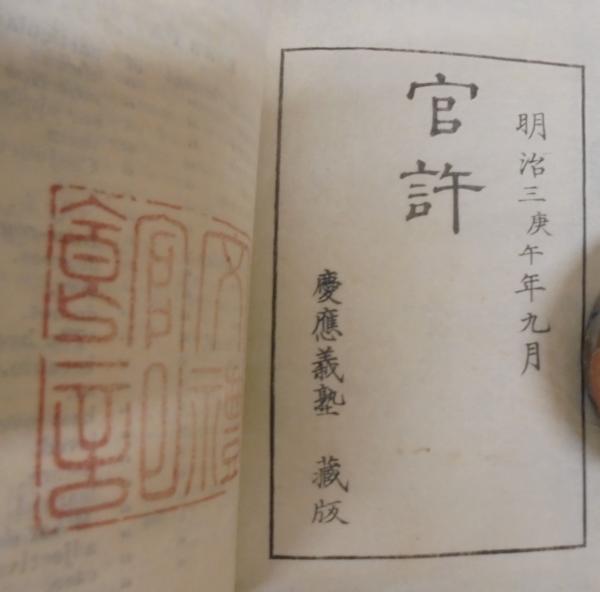 明治三庚午年九月
官許
慶應義塾 藏版